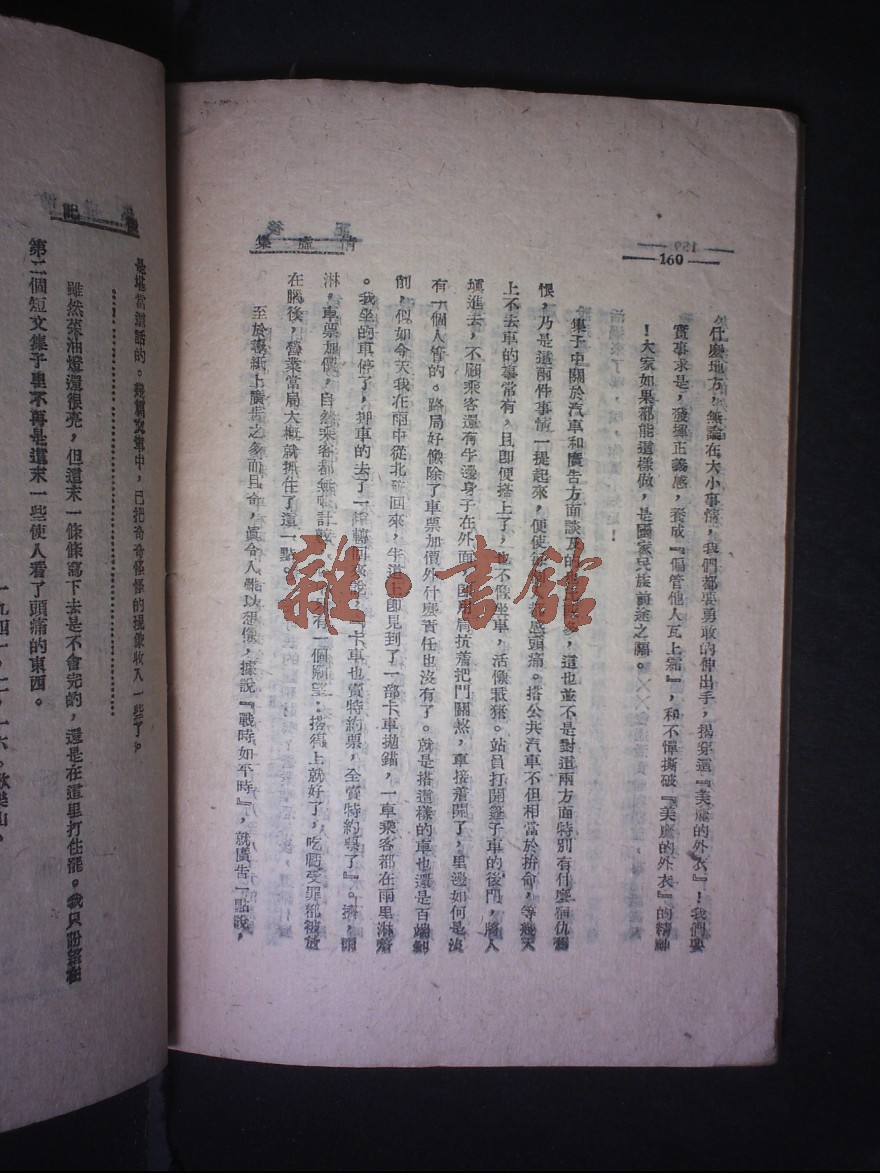 160
清虛集
什麽地方，無論在大小事情，我們都要勇敢的伸出手，揭穿這『美麗的外衣』！我們要
實事求是，發揮正義感，養成『偏管他人瓦上霜』，和不憚撕破『美麗的外衣』的精神
！大家如果都能這樣做，是國家民族前途之福。
集子中關於汽車和廣告方面談及的多，這也並不是對這兩方面特別有什麽宿仇舊
恨，乃是這兩件事情一提起來，便使感頭痛。搭公共汽車不但相當於拚命，等幾天
上不去車的事常有，且即便搭上了，也不像坐車，活像裝猪。站員打開篷子車的後門，將人
塡進去，不顧乘客還有半邊身子在外面，即用肩抗着把門關煞，車接着開了，里邊如何是沒
有一個人管的。路局好像除了車票加價外什麽責任也沒有了。就是搭這樣的車也還是百端
，似如今天我在雨中從北碚回來，半道上即見到了一部卡車拋錨，一車乘客都在雨里淋着
。我坐的車停了，押車的去了一條轉回來說，『卡車也賣特約票，全賣特約票了』。
淋，車票加價，自然乘客都無計較，有一個願望：搭得上就好了，吃苦受罪都被放
在腦後，營業當局大概就抓住了這一點。
至於報紙上廣告之多而且奇，眞令人難以想像，據說『戰時如平時』，就廣告一點說，
後記
是堪當這話的。幾篇文章中，已把奇奇怪怪的現像收入一些了。
雖然菜油燈還很亮，但這末一條條寫下去是不會完的，還是在這里打住罷。我只盼望在
第二個短文集子里不再是這末一些使人看了頭痛的東西。
一九四一，，一六。歌樂山。